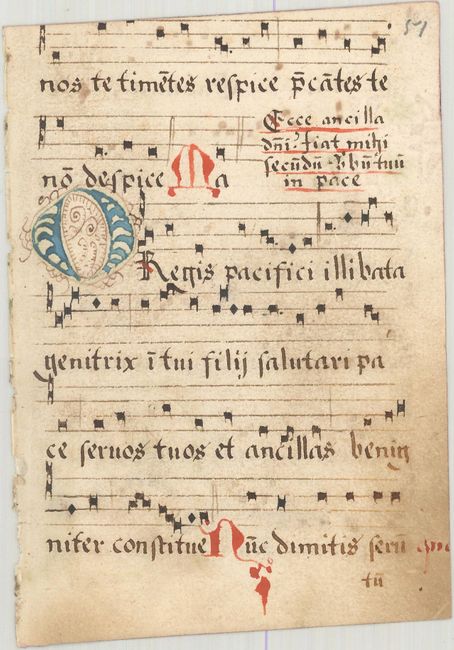 51
nos te timētes respice p̄cātes te
Ecce ancilla
dn̄i. fiat mihi
secūdū v̄bū tuū
in pace
nō despice Ma
O Regis pacifici illibata
genitrix ī tui filij salutari pa
ce seruos tuos et ancillas benig
niter constitue Nūc dimitis seruū
tū